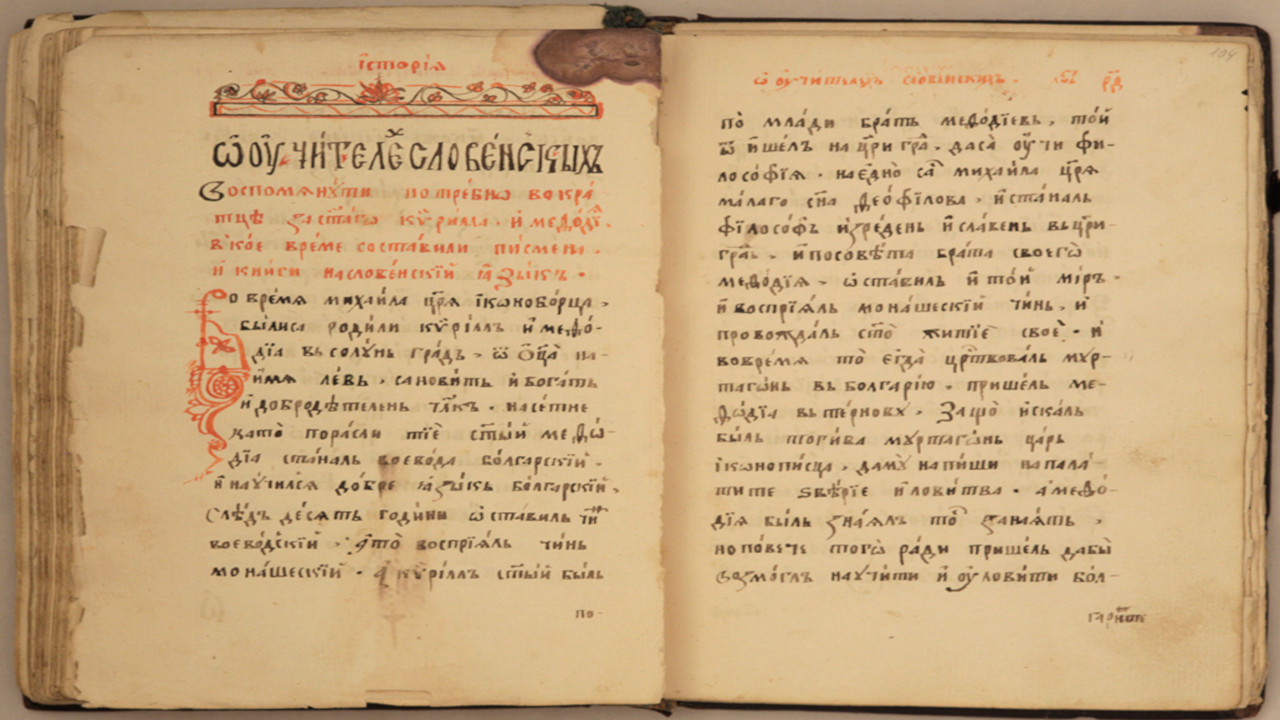 їсторїѧ
Ѡ ОУ҆ЧИ́ТЕЛЕ́Х СЛОВЕ́НСКЫХЪ
Воспомѧнꙋ́ти потре́бнѡ вокра́
тцѣ за ст҃а́гѡ кѷри́лла · и҆ меѳо́дї ·
в кое́ вре́ме соста́вили пи́смена ·
и҆ кни́ги на слове́нскїй ꙗ҆зы́къ ·
о вре́мѧ михаи́ла цр҃ѧ ї҆коноборца ·
бы́лисѧ роди́ли кѷрі́ллъ и҆ меѳо́-
дїа въ солꙋ́нь гра́дъ · ѿ ѻ҆ц҃а на
и҆́мѧ ле́въ · санови́тъ и҆ бога́тъ
и҆ добродѣ́теленъ чл҃къ · насе́тне
като̀ пора́сли тїе́ ст҃ы́й меѳѡ́-
дїа ста́налъ воево́да бо́лгарскїй ·
и҆ наꙋчи́лсѧ до́бре ꙗ҆зы́къ бо́лгарскїй ·
Слѣ́дъ де́сѧть годи́ни ѡ҆ста́вилъ чи́нъ
воево́дскїй · а҆ то̀ воспрїѧ́лъ чи́нъ
мона́шескїй · А҆ кѷрі́ллъ ст҃ы́й бы́лъ
по-
ѡ оу҆чителехъ словенскихъ · рд
104
по̀ мла́ди бра́тъ меѳо́дїевъ · то́й
ѿи́шелъ на цр҃и гра́ · да сѧ̀ оу҆́чи фи-
лосо́фїѧ · на є҆́дно са михаи́ла цр҃ѧ̀
ма́лаго сн҃а ѳео́филова · и҆ ста́налъ
фїло́софъ и҆зре́денъ и҆ сла́венъ въ цр҃и
гра́ · и҆ посовѣ́та бра́та своегѡ̀
меѳо́дїѧ · ѡ҆ста́вилъ и҆ то́й мі́ръ ·
и҆ воспрїѧ́лъ мона́шескїй чи́нъ · и҆
провожда́лъ ст҃о̀ житїѐ своѐ · и҆
во вре́мѧ то̀ є҆гда̀ цр҃твовалъ мꙋр-
тага́нъ въ болга́рїю · прише́лъ ме-
ѳо́дїа въ те́рновъ · Защо̀ и҆ска́лъ
бы́лъ тоги́ва мꙋртаго́нъ ца́ръ
ї҆конопи́сца · да мꙋ напи́ши на пала́-
тите ѕвѣ́рїе и҆ лови́тва · а҆ меѳо́-
дїа бы́лъ зна́ѧлъ то́ зана́ѧтъ ·
но по́вече тогѡ̀ ра́ди прише́лъ дабы̀
возмо́глъ наꙋчи́ти и҆ оу҆лови́ти бо́л-
гари́те